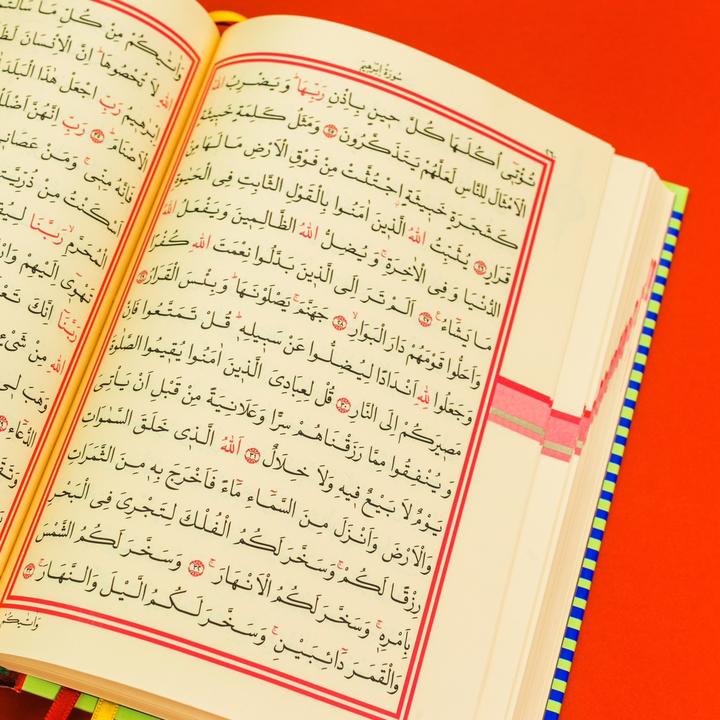 سُورَةُ اِبْرٰهِيمَ
تُؤْتِٓي اُكُلَهَا كُلَّ حِينٍ بِاِذْنِ رَبِّهَاۜ وَيَضْرِبُ اللّٰهُ
الْاَمْثَالَ لِلنَّاسِ لَعَلَّهُمْ يَتَذَكَّرُونَ ﴿٢٥﴾ وَمَثَلُ كَلِمَةٍ خَبِيثَةٍ
كَشَجَرَةٍ خَبِيثَةٍ اجْتُثَّتْ مِنْ فَوْقِ الْاَرْضِ مَا لَهَا مِنْ
قَرَارٍ ﴿٢٦﴾ يُثَبِّتُ اللّٰهُ الَّذِينَ اٰمَنُوا بِالْقَوْلِ الثَّابِتِ فِي الْحَيٰوةِ
الدُّنْيَا وَفِي الْاٰخِرَةِۚ وَيُضِلُّ اللّٰهُ الظَّالِمِينَ وَيَفْعَلُ اللّٰهُ
مَا يَشَٓاءُ ﴿٢٧﴾ اَلَمْ تَرَ اِلَى الَّذِينَ بَدَّلُوا نِعْمَتَ اللّٰهِ كُفْرًا
وَاَحَلُّوا قَوْمَهُمْ دَارَ الْبَوَارِۙ ﴿٢٨﴾ جَهَنَّمَۚ يَصْلَوْنَهَاۜ وَبِئْسَ الْقَرَارُ ﴿٢٩﴾
وَجَعَلُوا لِلّٰهِ اَنْدَادًا لِيُضِلُّوا عَنْ سَبِيلِهِۜ قُلْ تَمَتَّعُوا فَاِنَّ
مَصِيرَكُمْ اِلَى النَّارِ ﴿٣٠﴾ قُلْ لِعِبَادِيَ الَّذِينَ اٰمَنُوا يُقِيمُوا الصَّلٰوةَ
وَيُنْفِقُوا مِمَّا رَزَقْنَاهُمْ سِرًّا وَعَلَانِيَةً مِنْ قَبْلِ اَنْ يَأْتِيَ
يَوْمٌ لَا بَيْعٌ فِيهِ وَلَا خِلَالٌ ﴿٣١﴾ اَللّٰهُ الَّذِي خَلَقَ السَّمٰوَاتِ
وَالْاَرْضَ وَاَنْزَلَ مِنَ السَّمَٓاءِ مَٓاءً فَاَخْرَجَ بِهِ مِنَ الثَّمَرَاتِ
رِزْقًا لَكُمْۚ وَسَخَّرَ لَكُمُ الْفُلْكَ لِتَجْرِيَ فِي الْبَحْرِ
بِاَمْرِهِۚ وَسَخَّرَ لَكُمُ الْاَنْهَارَۚ ﴿٣٢﴾ وَسَخَّرَ لَكُمُ الشَّمْسَ
وَالْقَمَرَ دَٓائِبَيْنِۚ وَسَخَّرَ لَكُمُ الَّيْلَ وَالنَّهَارَۚ ﴿٣٣﴾
وَاٰتٰيكُمْ
وَاٰتٰيكُمْ مِنْ كُلِّ مَا
اللّٰهِ لَا تُحْصُوهَاۜ اِنَّ الْاِنْسَانَ
اِبْرٰهِيمُ رَبِّ اجْعَلْ هٰذَا الْبَلَدَ
الْاَصْنَامَۜ ﴿٣٥﴾ رَبِّ اِنَّهُنَّ
فَاِنَّهُ مِنِّيۚ وَمَنْ عَصَانِي
اَسْكَنْتُ مِنْ
الْمُحَرَّمِۙ رَبَّنَا
تَهْوِٓي اِلَيْهِمْ
رَبَّنَٓا اِنَّكَ
اللّٰهِ مِنْ شَيْءٍ
وَهَبَ لِي
الدُّعَٓاءِ